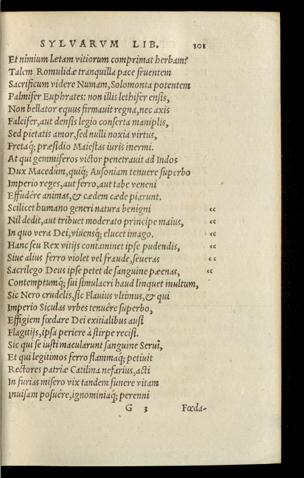 SYLVARVM LIB. 301
Et nimium lætam vitiorum comprimat herbam?
Talem Romulidæ tranquilla pace fruentem
Sacrificum videre Numam, Solomonta potentem
Palmifer Euphrates: non illis lethifer ensis,
Non bellator equus firmauit regna, nec axis
Falcifer, aut densis legio conserta maniplis,
Sed pietatis amor, sed nulli noxia virtus,
Fretaq; præsidio Maiestas iuris inermi.
At qui gemmiferos victor penetrauit ad Indos
Dux Macedum, quiq; Ausoniam tenuere superbo
Imperio reges, aut ferro, aut tabe veneni
Effudêre animas, & cædem cæde piarunt.
Scilicet humano generi natura benigni “
Nil dedit, aut tribuet moderato principe maius, “
In quo vera Dei, viuensq; elucet imago. “
Hanc seu Rex vitijs contaminet ipse pudendis, “
Siue alius ferro violet vel fraude, seueras “
Sacrilego Deus ipse petet de sanguine pœnas, “
Contemptumq; sui simulacri haud linquet inultum,
Sic Nero crudelis, sic Flauius vltimus, & qui
Imperio Siculas vrbes tenuêre superbo,
Effigiem fœdare Dei exitialibus ausi
Flagitijs, ipsa periere à stirpe recisi.
Sic qui se iusti macularunt sanguine Seruî,
Et qui legitimos ferro flammaq; petiuit
Rectores patriæ Catilina nefarius, acti
In furias misero vix tandem funere vitam
Inuisam posuêre, ignominiaq; perenni
G 3 Fœda-